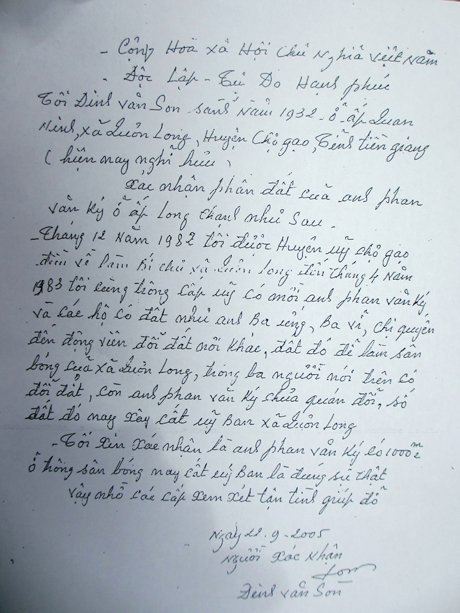 - Cộng Hoà xã Hội Chủ Nghĩa Việt Nam
- Độc Lập - Tự Do Hanh phúc
Tôi Đinh văn Son sanh Năm 1932 - ở ấp Quan
Ninh, xã Quơn Long, Huyện Chợ gạo, Tỉnh tiền giang
( hiện nay nghĩ hưu )
Xác nhận phần đất của anh phan
văn Ký ở ấp Long thanh như sau.
- Tháng 12 Năm 1982 tôi được Huyện uỹ chợ gạo
điều về làm Bí thư xã Quơn Long đến tháng 4 Năm
1983 tôi cùng trong cấp uỹ có mời anh phan văn Ký
và các hộ có đất như anh Ba ứng, Ba vĩ, chị quyên
đến động viên đổi đất nơi khác, đất đó để làm sân
bóng của xã Quơn Long, trong ba người nói trên có
đổi đất, còn anh phan văn Ký chưa quan đổi, số
đất đó nay xây cất uỹ Ban xã Quơn Long
- Tôi xin xác nhận là anh phan văn Ký có 1000m2
ở trong sân bóng nay cất uỹ Ban là đúng sự thật
vậy nhờ các cấp xem xét tận tình giúp đỡ
Ngày 28.9-2005
Người Xác Nhận
Son
Đinh văn Son